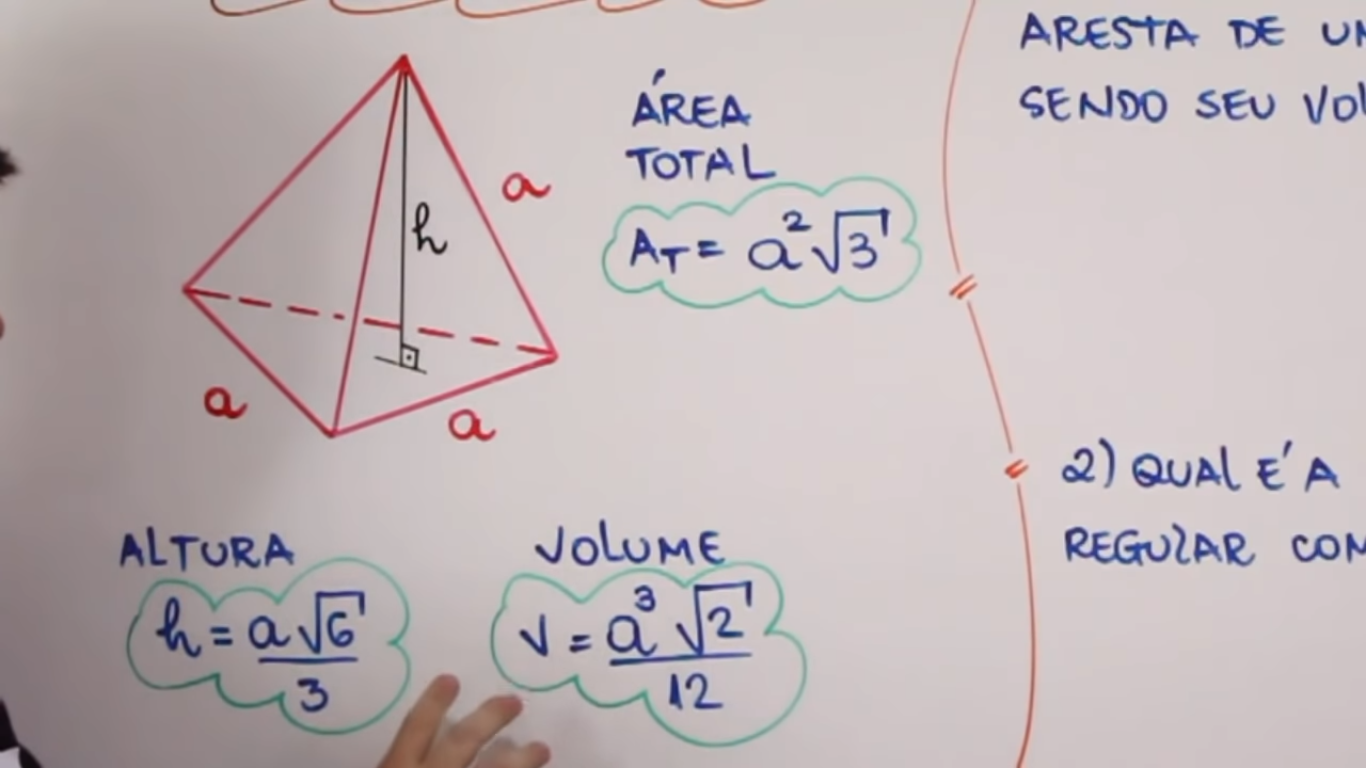 ÁREA
TOTAL
a
h
A_T = a²√3
a
a
ALTURA
h = a√6
3
VOLUME
V = a³√2
12
ARESTA DE
SENDO SEU
2) QUAL É A
REGULAR